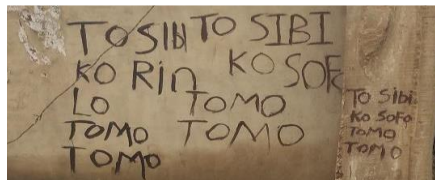 TO SIBI
KO RIN
LO
TOMO
TOMO
TO SIBI
KO SOFO
TOMO
TOMO
TO SiBi
KO SOFO
TOMO
TOMO